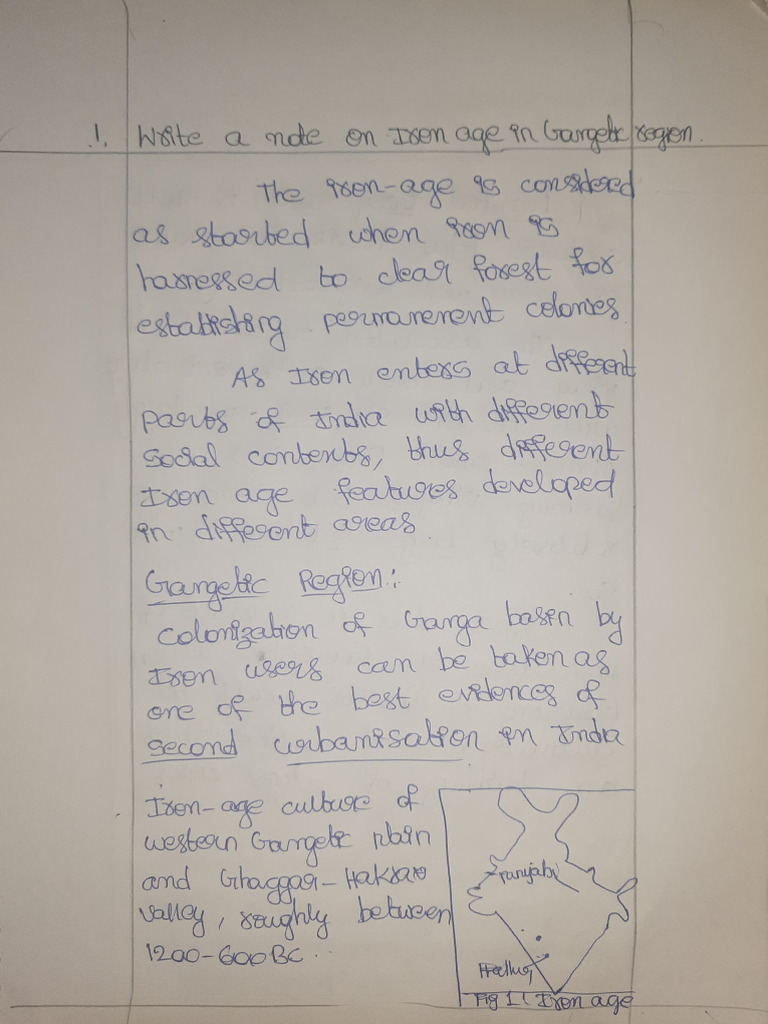 1. Write a note on Iron age in Gangetic region.
The iron-age is considered
as started when iron is
harnessed to clear forest for
establishing permanerent colonies.
As Iron enters at different
parts of India with different
social contexts, thus different
Iron age features developed
in different areas.
Gangetic Region:
Colonization of Ganga basin by
Iron users can be taken as
one of the best evidences of
second urbanisation in India
Iron-age culture of
western Gangetic plain
and Ghaggar-Hakra
valley, roughly between
1200-600 BC.
Punjab
Hallur
Fig 1: Iron age